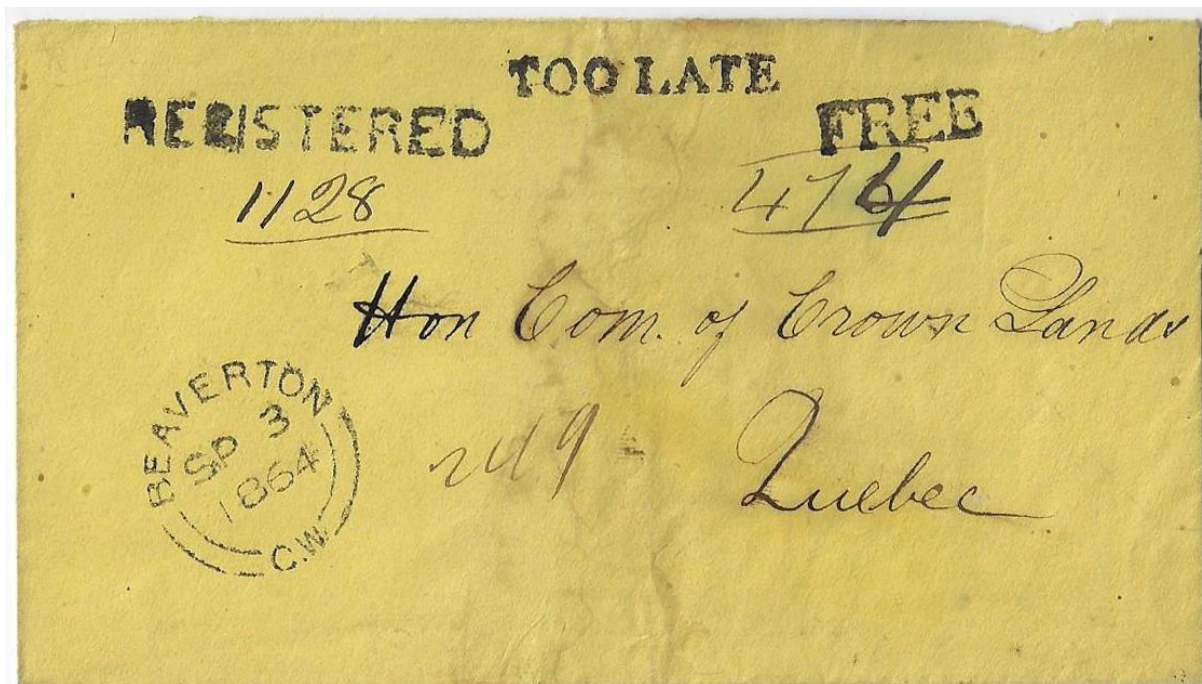 TOO LATE
REGISTERED
FREE
1128
Hon Com. of Crown Lands
Quebec
BEAVERTON
SP 3
1864
C.W.